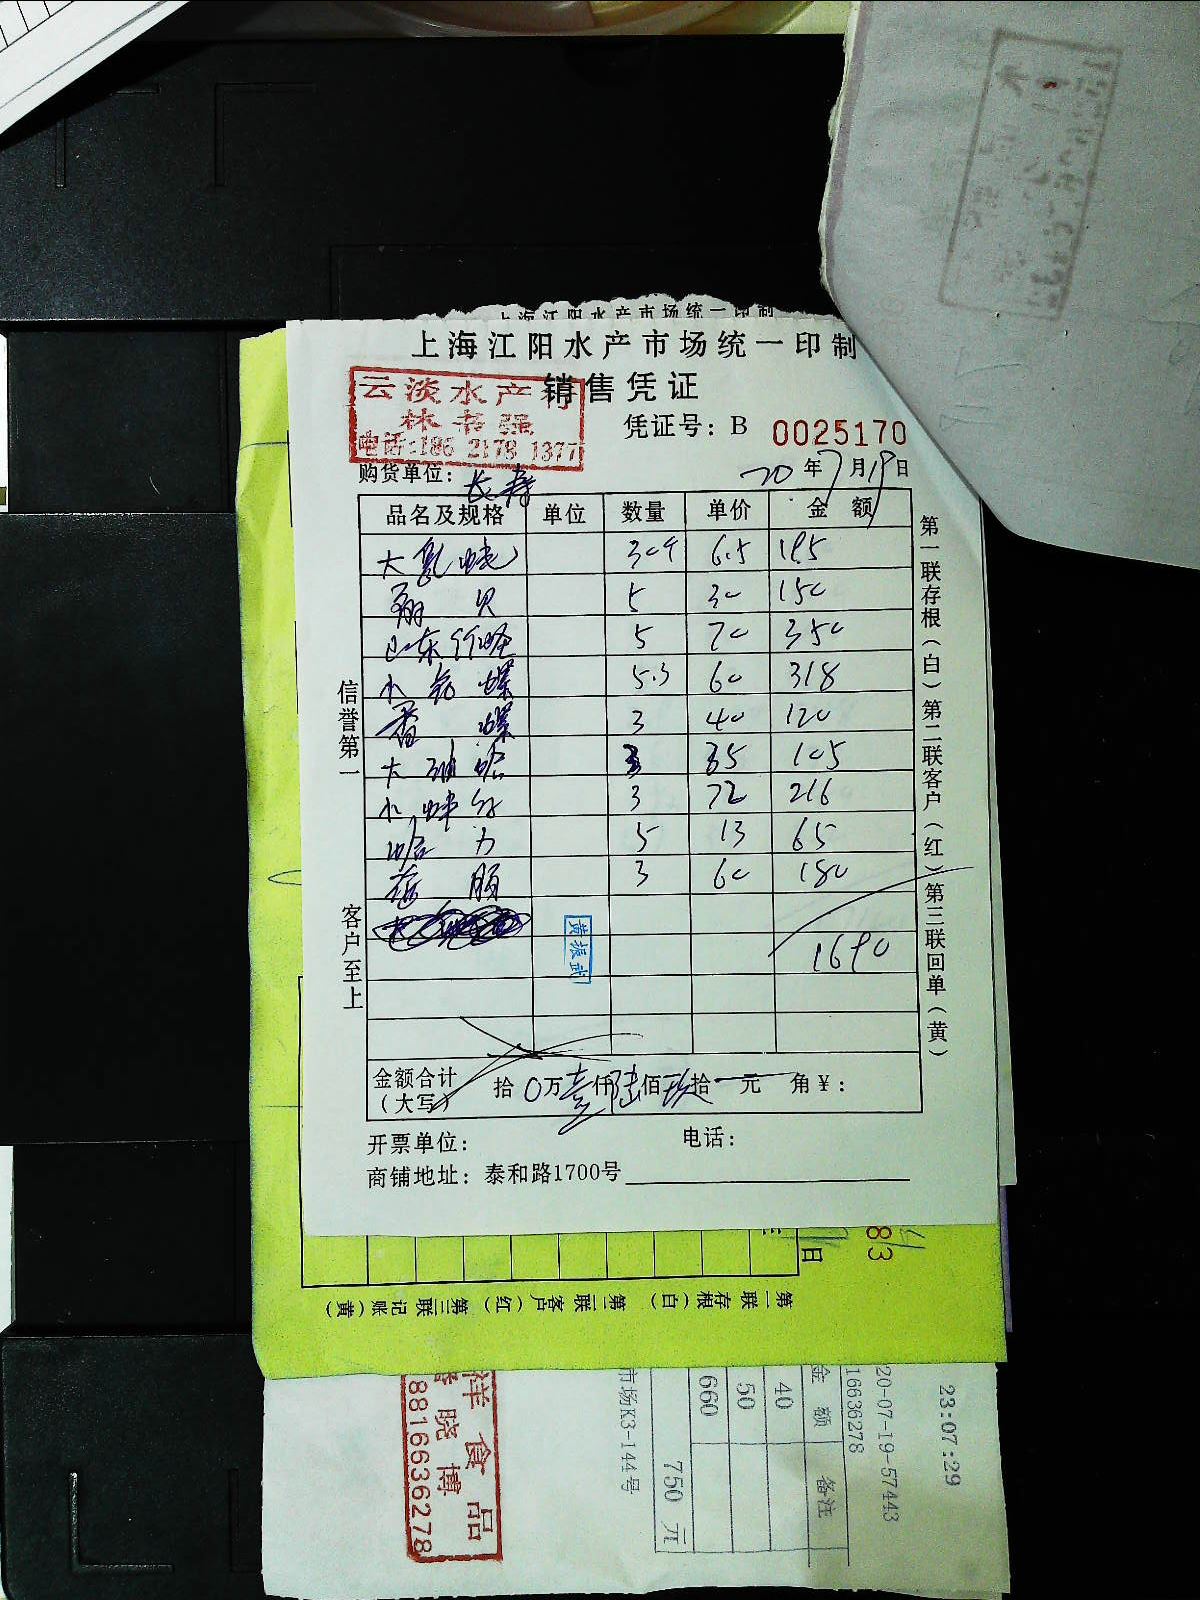 上海江阳水产市场统一印制
上海江阳水产市场统一印制
销售凭证
云淡水产行
林书强
电话:186 2178 1377
凭证号: B 0025170
购货单位: 长寿
20 年 7 月 19 日
品名及规格 单位 数量 单价 金 额
大 蛏 6.5 195
贝 5 30 150
山东竹蛏 5 70 350
小 螺 5.3 60 318
香 螺 3 40 120
大 蛤 3 35 105
小 蚌 3 72 216
蛤 力 5 13 65
3 60 180
黄振武
1690
金额合计
(大写)
拾 0万 壹仟 陆佰 玖拾 元 角 ¥:
开票单位: 电话:
商铺地址: 泰和路1700号
信誉第一
客户至上
第一联存根(白)第二联客户(红)第三联回单(黄)
83
日
第一联存根(白) 第二联客户(红) 第三联记账(黄)
祥食品
晓博
8816636278
市场K3-144号
金额 备注
40
50
660
750 元
16636278
20-07-19-57443
23:07:29